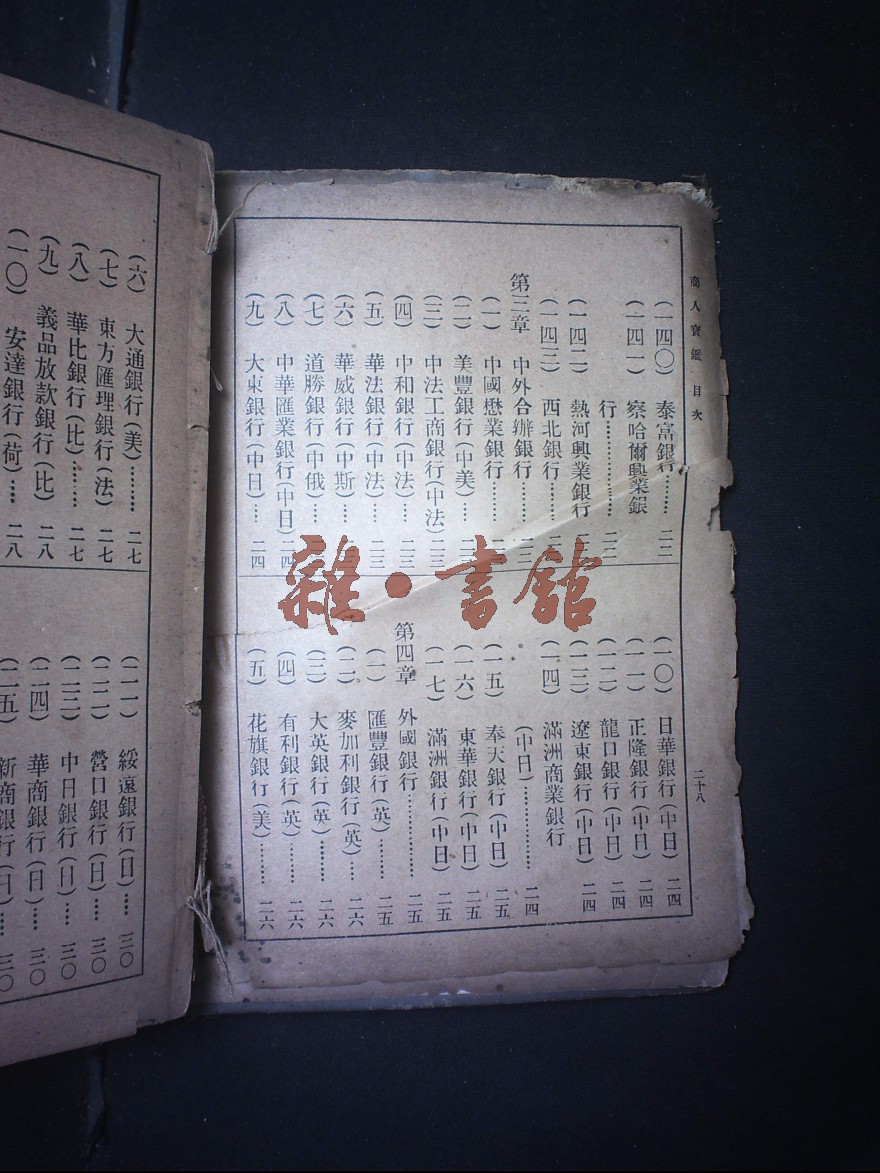 商人寶鑑 目次
(一四〇) 泰富銀行……二二
(一四一) 察哈爾興業銀
行……………二二
(一四二) 熱河興業銀行
(一四三) 西北銀行……
第三章 中外合辦銀行……二三
(一) 中國懋業銀行……
(二) 美豐銀行(中美)……
(三) 中法工商銀行(中法)二三
(四) 中和銀行(中法)……二三
(五) 華法銀行(中法)……二三
(六) 華威銀行(中斯)……
(七) 道勝銀行(中俄)……
(八) 中華匯業銀行(中日)二四
(九) 大東銀行(中日)…二四
(一〇) 日華銀行(中日)二四
(一一) 正隆銀行(中日)二四
(一二) 龍口銀行(中日)二四
(一三) 遼東銀行(中日)二四
(一四) 滿洲商業銀行
(中日)……………二四
(一五) 奉天銀行(中日)二五
(一六) 東華銀行(中日)二五
(一七) 滿洲銀行(中日)二五
第四章 外國銀行……………二五
(一) 匯豐銀行(英)……二五
(二) 麥加利銀行(英)…二六
(三) 大英銀行(英)……二六
(四) 有利銀行(英)……二六
(五) 花旗銀行(美)……二六
二十八
(六) 大通銀行(美)……二七
(七) 東方匯理銀行(法)二七
(八) 華比銀行(比)……二七
(九) 義品放款銀行(比)二八
(一〇) 安達銀行(荷)…二八
(二一) 綏遠銀行(日)…三〇
(二二) 營口銀行(日)…三〇
(二三) 中日銀行(日)…三〇
(二四) 華商銀行(日)…三〇
(二五) 新商銀行(日)…三〇
雜·書館